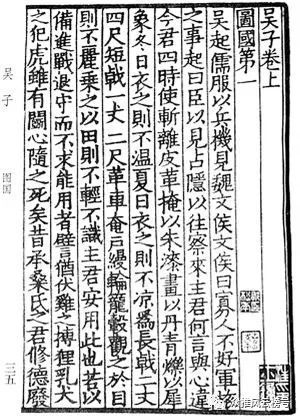 吳子卷上
圖國第一
吳起儒服以兵機見魏文侯文侯曰寡人不好軍旅
之事起曰臣以見占隱以往察來主君何言與心違
今君四時使斬離皮革掩以朱漆畫以丹青爍以犀
象冬日衣之則不溫夏日衣之則不凉爲長戟二丈
四尺短戟一丈二尺革車奄戶縵輪籠轂觀之於目
則不麗乘之以田則不輕不識主君安用此也若以
備進戰退守而不求能用者譬猶伏雞之搏狸乳犬
之犯虎雖有鬭心隨之死矣昔承桑氏之君修德廢
吴子
图国
三五